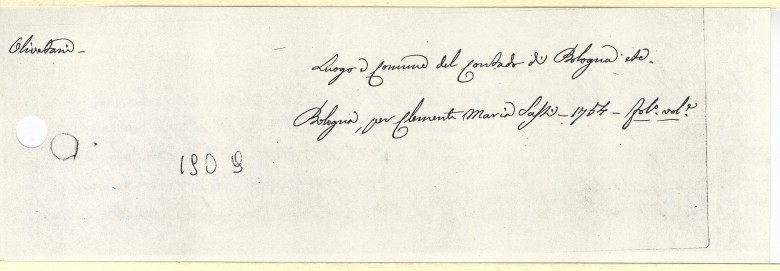 Olivetani -
Luogo e Comune del Contado di Bologna etc.
Bologna, per Clemente Maria Sassi - 1754 - fol.º vol.º
1909